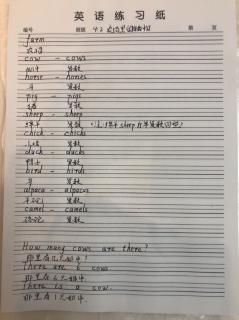 英 语 练 习 纸
编号 班级 4.2 农场里的动物 第 页
farm
农场
cow - cows
奶牛 复数
horse - horses
马 复数
pig - pigs
猪 复数
sheep - sheep
绵羊 复数 (注:绵羊 sheep 的单复数同型)
chick - chicks
小鸡 复数
duck - ducks
鸭子 复数
bird - birds
鸟 复数
alpaca - alpacas
羊驼 复数
camel - camels
骆驼 复数
How many cows are there?
那里有几只奶牛?
There are 6 cows.
那里有6只奶牛.
There is a cow.
那里有1只奶牛.